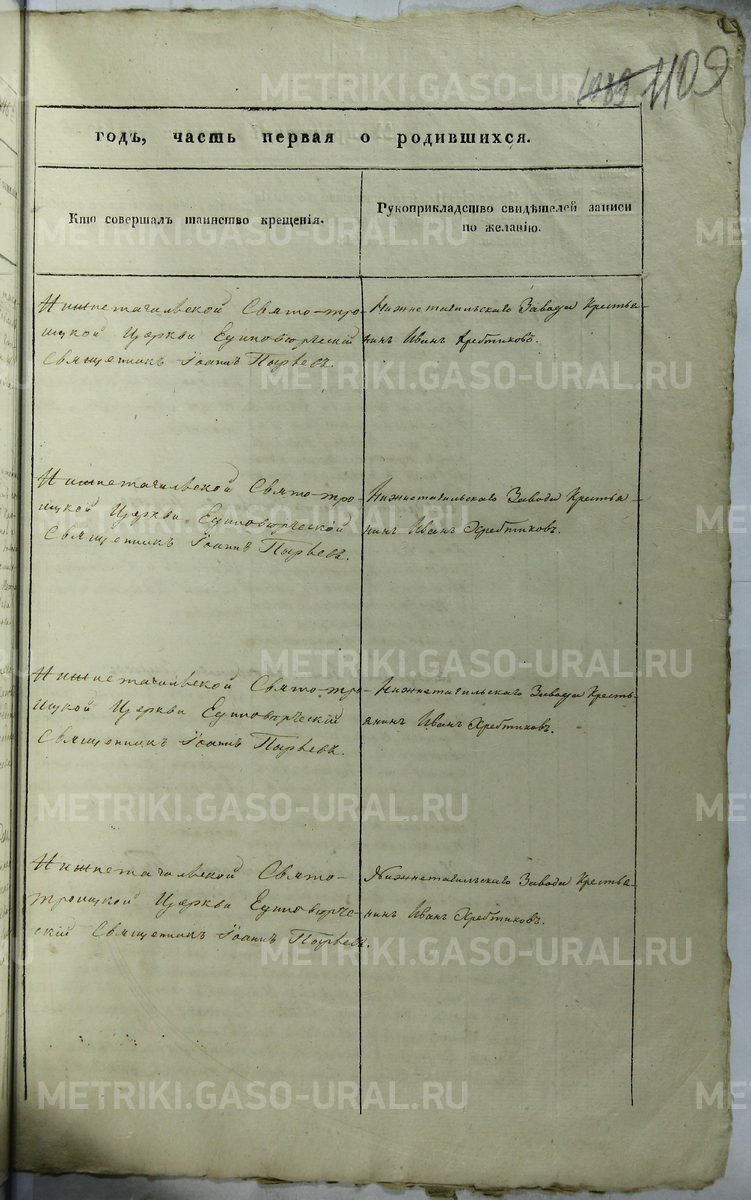 1109
годъ, часть первая о родившихся.
Кто совершалъ таинство крещенія.
Рукоприкладство свидѣтелей записи
по желанію.
Нижнетагильской Свято-тро-
ицкой Церкви Единовѣрческій
Священникъ Іоаннъ Пырьевъ.
Нижнетагильскаго Завода Крестья-
нинъ Иванъ Хребтиковъ.
Нижнетагильской Свято-тро-
ицкой Церкви Единовѣрческой
Священникъ Іоаннъ Пырьевъ.
Нижнетагильскаго Завода Крестья-
нинъ Иванъ Хребтиковъ.
Нижнетагильской Свято-тро-
ицкой Церкви Единовѣрческій
Священникъ Іоаннъ Пырьевъ.
Нижнетагильскаго Завода Кресть-
янинъ Иванъ Хребтиковъ.
Нижнетагильской Свято-
троицкой Церкви Единовѣрче-
скій Священникъ Іоаннъ Пырьевъ.
Нижнетагильскаго Завода Крестья-
нинъ Иванъ Хребтиковъ.
METRIKI.GASO-URAL.RU